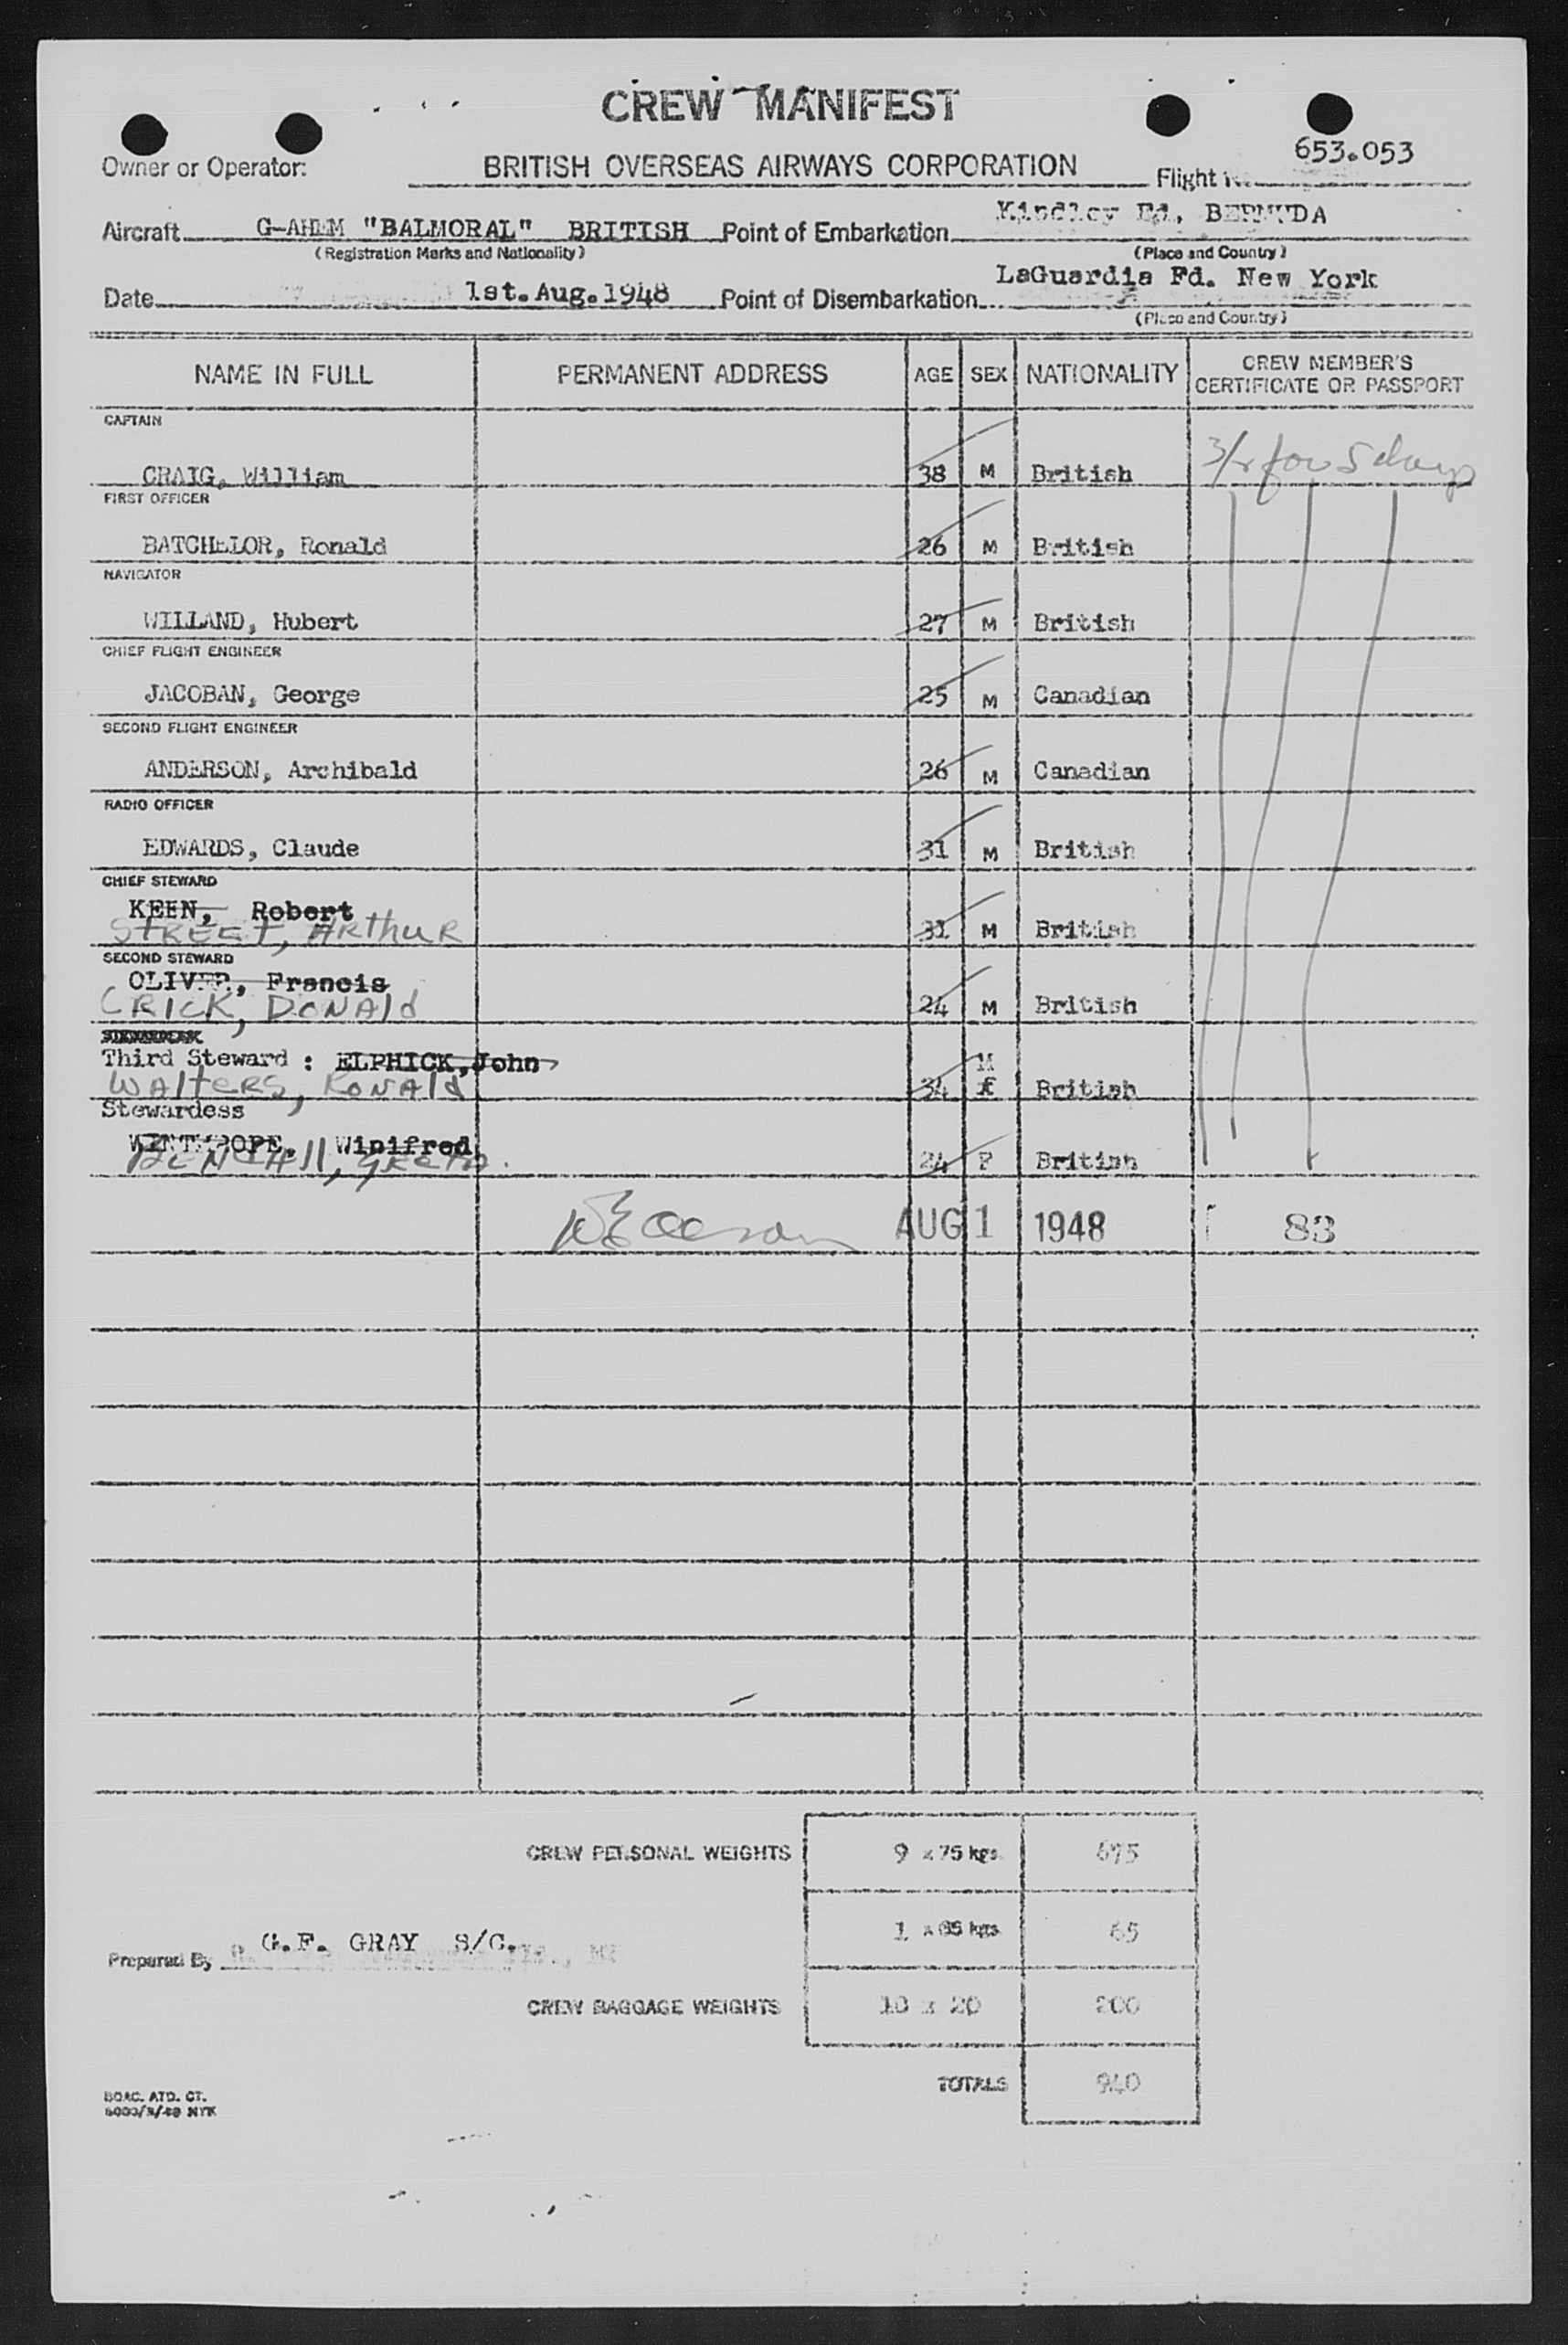 CREW MANIFEST
Owner or Operator: BRITISH OVERSEAS AIRWAYS CORPORATION Flight 653.053
Aircraft G-AHEM "BALMORAL" BRITISH Point of Embarkation Kindley Fd, BERMUDA
(Registration Marks and Nationality) (Place and Country)
Date 1st.Aug.1948 Point of Disembarkation LaGuardia Fd. New York
(Place and Country)
NAME IN FULL PERMANENT ADDRESS AGE SEX NATIONALITY CREW MEMBER'S CERTIFICATE OR PASSPORT
CAPTAIN
CRAIG, William 38 M British for 5 days
FIRST OFFICER
BATCHELOR, Ronald 26 M British
NAVIGATOR
WILLAND, Hubert 27 M British
CHIEF FLIGHT ENGINEER
JACOBAN, George 25 M Canadian
SECOND FLIGHT ENGINEER
ANDERSON, Archibald 26 M Canadian
RADIO OFFICER
EDWARDS, Claude 31 M British
CHIEF STEWARD
KEEN, Robert
STREET, ARthuR 31 M British
SECOND STEWARD
OLIVER, Francis
CRICK, DONAld 24 M British
Third Steward : ELPHICK, John
WAlteRS, RONAld 34 M British
Stewardess
WINTHROPE, Winifred
24 F British
AUG 1 1948 83
CREW PERSONAL WEIGHTS 9 x 75 kgs. 675
1 x 65 kgs. 65
Prepared By G.F. GRAY S/C.
CREW BAGGAGE WEIGHTS 10 x 20 200
TOTALS 940
BOAC. ATD. CT.
NYK